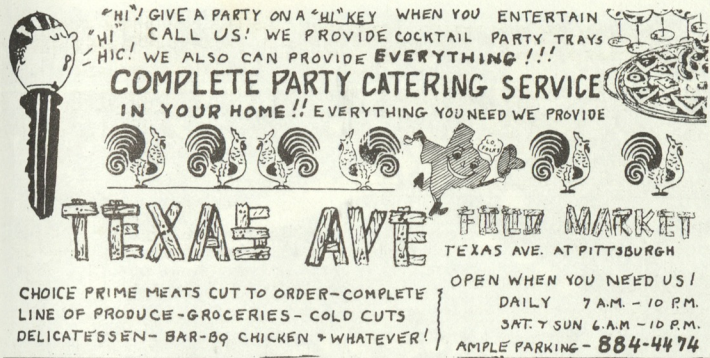 "HI"! GIVE A PARTY ON A "HI" KEY WHEN YOU ENTERTAIN
"HI" CALL US! WE PROVIDE COCKTAIL PARTY TRAYS
HIC! WE ALSO CAN PROVIDE EVERYTHING!!!
COMPLETE PARTY CATERING SERVICE
IN YOUR HOME!! EVERYTHING YOU NEED WE PROVIDE
LO, FOLKS
TEXAS AVE FOOD MARKET
TEXAS AVE. AT PITTSBURGH
CHOICE PRIME MEATS CUT TO ORDER-COMPLETE
LINE OF PRODUCE-GROCERIES-COLD CUTS
DELICATESSEN-BAR-BQ CHICKEN & WHATEVER!
OPEN WHEN YOU NEED US!
DAILY 7 A.M. - 10 P.M.
SAT. & SUN 6 A.M - 10 P.M.
AMPLE PARKING - 884-4474